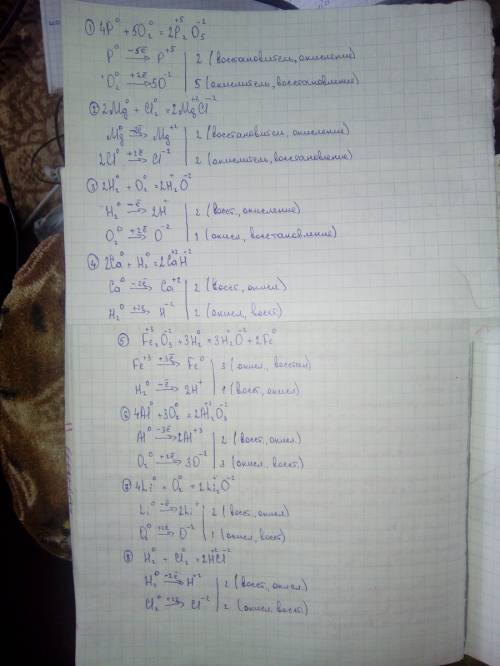 ① 4P⁰ + 5O₂⁰ = 2P₂⁺⁵O₅⁻²
P⁰ –5ē→ P⁺⁵ | 2 (восстановитель, окисление)
O₂⁰ +2ē→ 5O⁻² | 5 (окислитель, восстановление)
② 2Mg⁰ + Cl₂⁰ = 2Mg⁺²Cl⁻²
Mg⁰ –2ē→ Mg⁺² | 2 (восстановитель, окисление)
2Cl⁰ +2ē→ Cl⁻² | 2 (окислитель, восстановление)
③ 2H₂⁰ + O₂⁰ = 2H₂⁺O⁻²
H₂⁰ –ē→ 2H⁺ | 2 (восст., окисление)
O₂⁰ +2ē→ O⁻² | 1 (окисл., восстановление)
④ 2Ca⁰ + H₂⁰ = 2Ca⁺²H⁻²
Ca⁰ –2ē→ Ca⁺² | 2 (восст., окисл)
H₂⁰ +2ē→ H⁻² | 2 (окисл, восст)
⑤ Fe₂⁺³O₃⁻² + 3H₂⁰ = 3H₂⁺O⁻² + 2Fe⁰
Fe⁺³ +3ē→ Fe⁰ | 3 (окисл., восстан)
H₂⁰ –ē→ 2H⁺ | 1 (восст, окисл)
⑥ 4Al⁰ + 3O₂⁰ = 2Al₂⁺³O₃⁻²
Al⁰ –3ē→ 2Al⁺³ | 2 (восст., окисл.)
O₂⁰ +2ē→ 3O⁻² | 3 (окисл., восст.)
⑦ 4Li⁰ + O₂⁰ = 2Li₂⁺O⁻²
Li⁰ –ē→ 2Li⁺ | 2 (восст., окисл)
O₂⁰ +2ē→ O⁻² | 1 (окисл, восст)
⑧ H₂⁰ – Cl₂⁰ = 2H⁺²Cl⁻²
H₂⁰ –2ē→ H⁺² | 2 (восст, окисл.)
Cl₂⁰ +2ē→ Cl⁻² | 2 (окисл, восст)